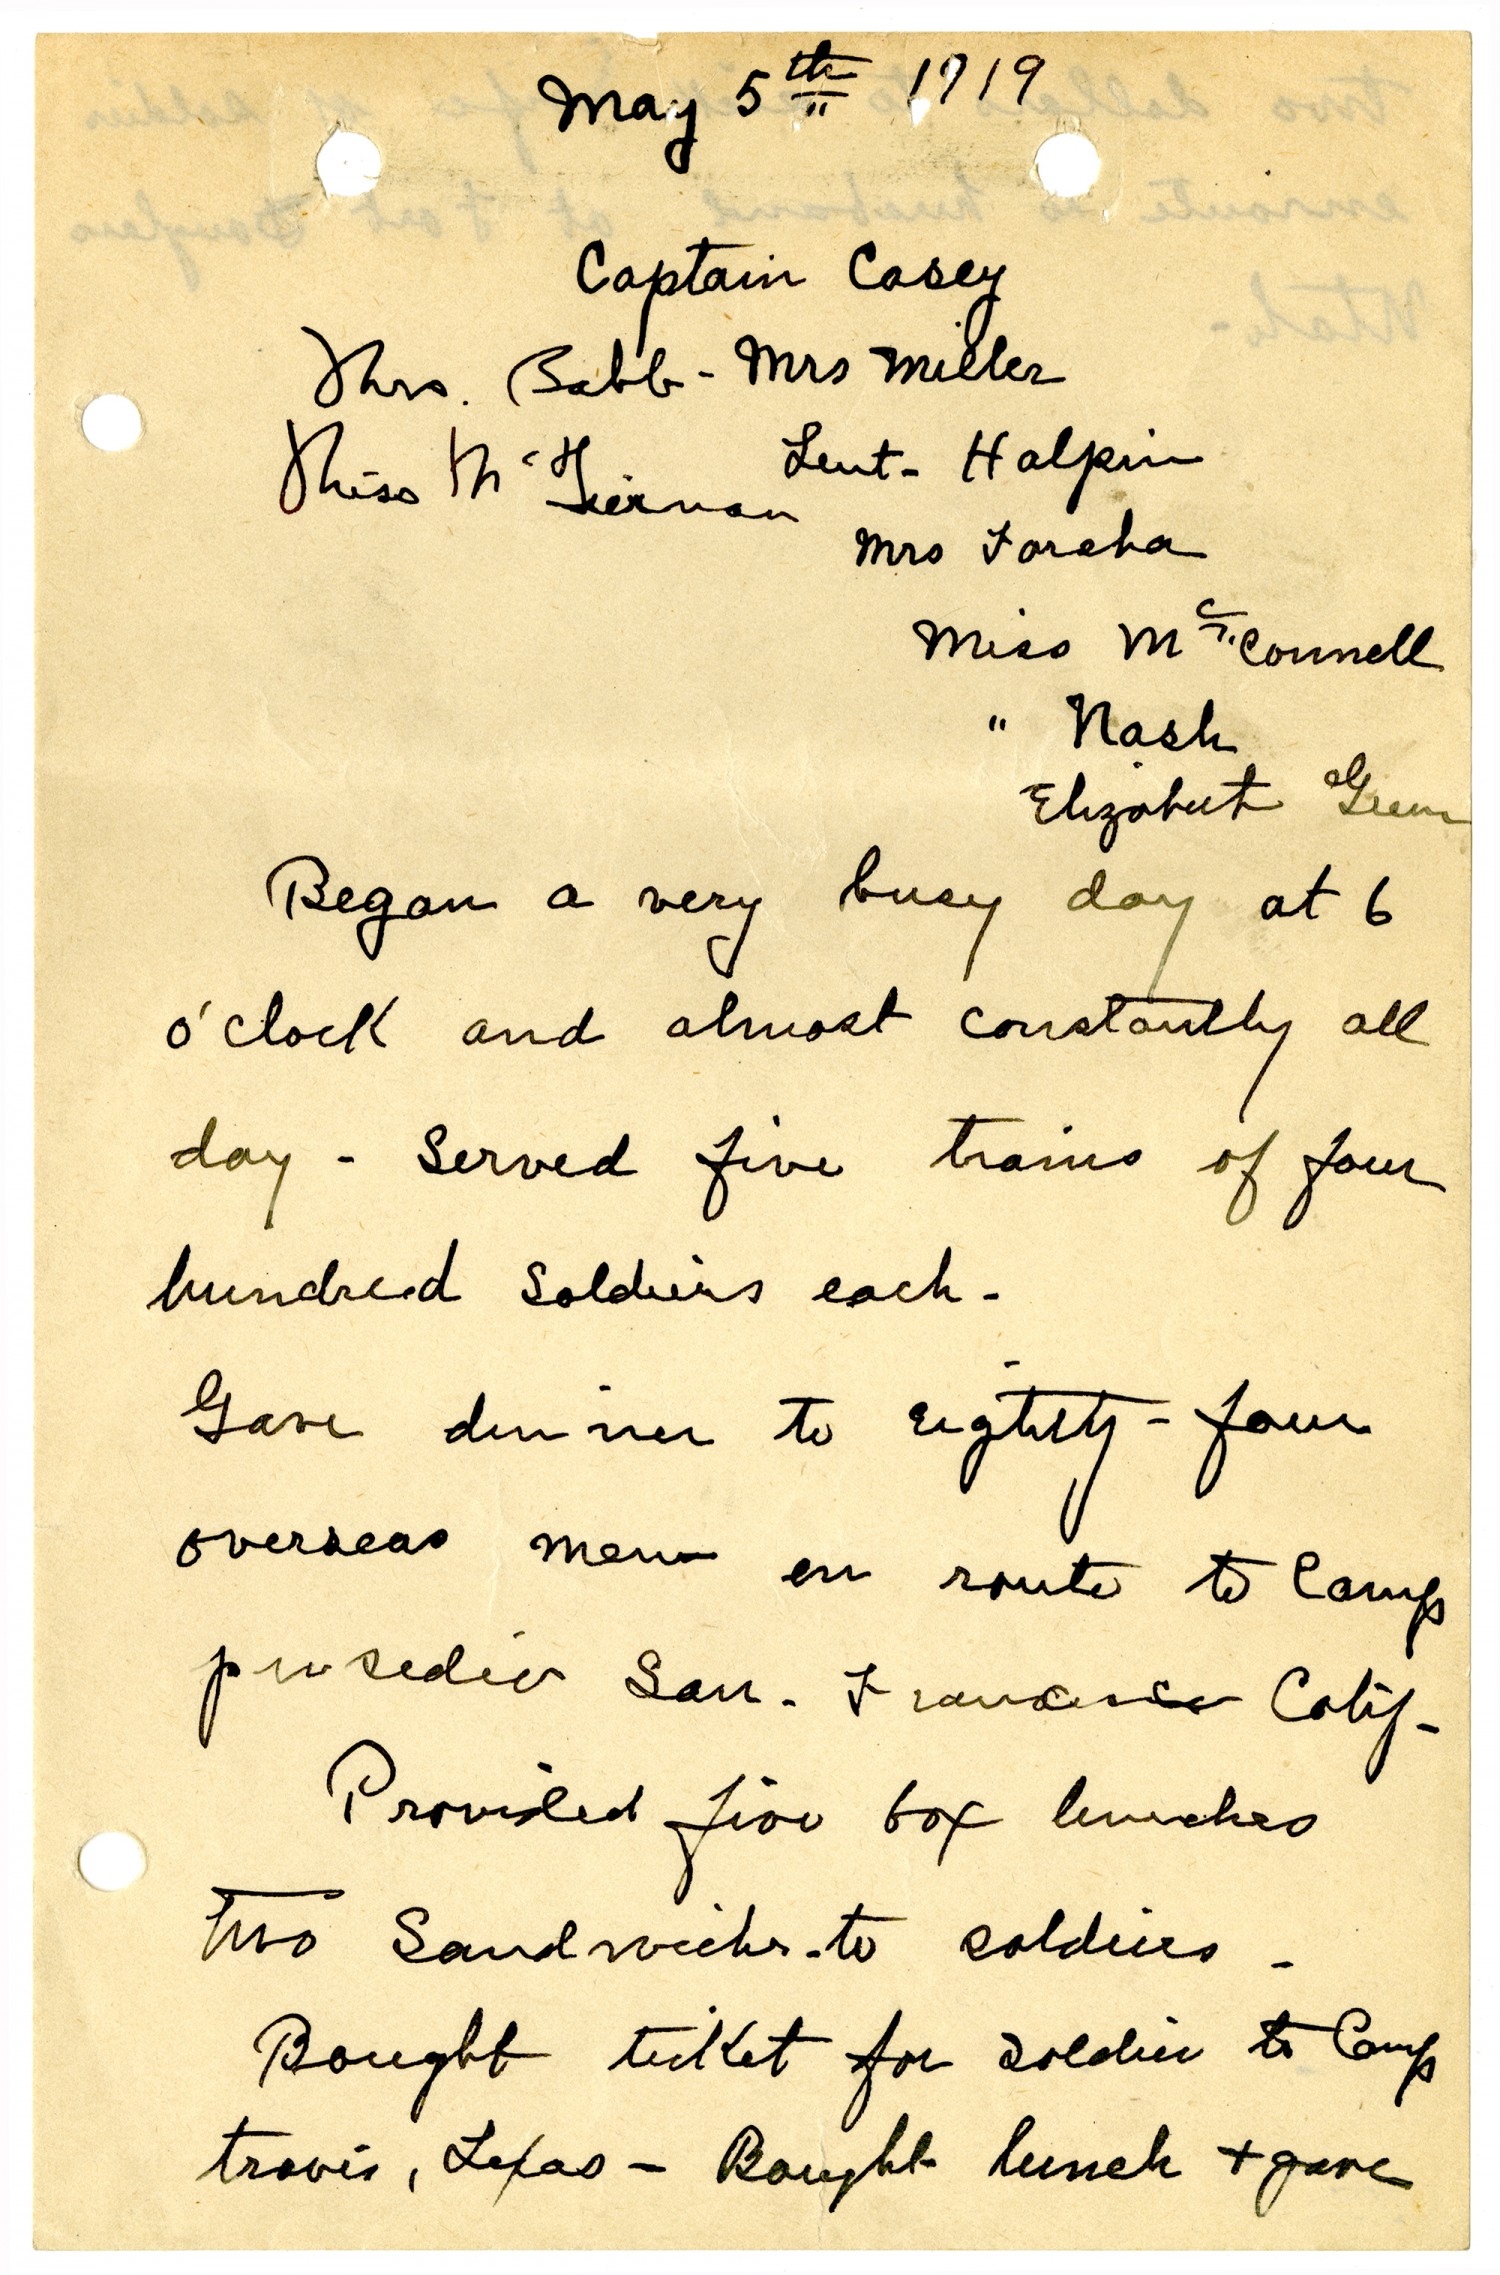 May 5th 1919
Captain Casey
Mrs. Babb - Mrs Miller
Miss McTiernan Leut - Halpin
Mrs
Miss McConnell
" Nash
Elizabeth Green
Began a very busy day at 6
o'clock and almost constantly all
day - Served five trains of four
hundred soldiers each -
Gave dinner to eighty-four
overseas men en route to Camp
presedio San - Francisco Calif -
Provided five box lunches
two Sandwiches - to soldiers -
Bought ticket for soldier to Camp
travis, Texas - Bought lunch + gave